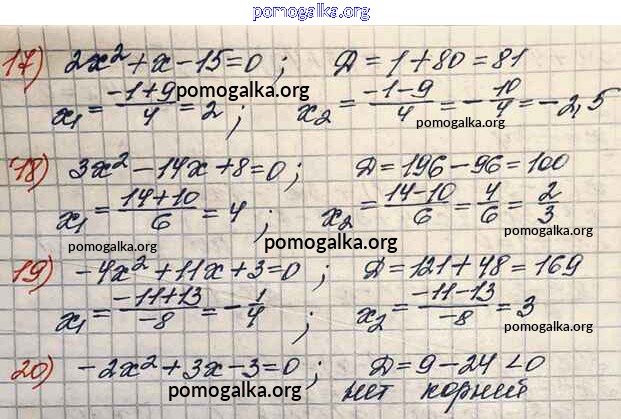 pomogalka.org
17) 2x² + x - 15 = 0 ; D = 1 + 80 = 81
x₁ = (-1+9)/4 = 2 ; x₂ = (-1-9)/4 = -10/4 = -2,5
pomogalka.org
pomogalka.org
18) 3x² - 14x + 8 = 0 ; D = 196 - 96 = 100
x₁ = (14+10)/6 = 4 ; x₂ = (14-10)/6 = 4/6 = 2/3
pomogalka.org
pomogalka.org
pomogalka.org
19) -4x² + 11x + 3 = 0 ; D = 121 + 48 = 169
x₁ = (-11+13)/-8 = -1/4 ; x₂ = (-11-13)/-8 = 3
pomogalka.org
20) -2x² + 3x - 3 = 0 ; D = 9 - 24 < 0
pomogalka.org
нет корней